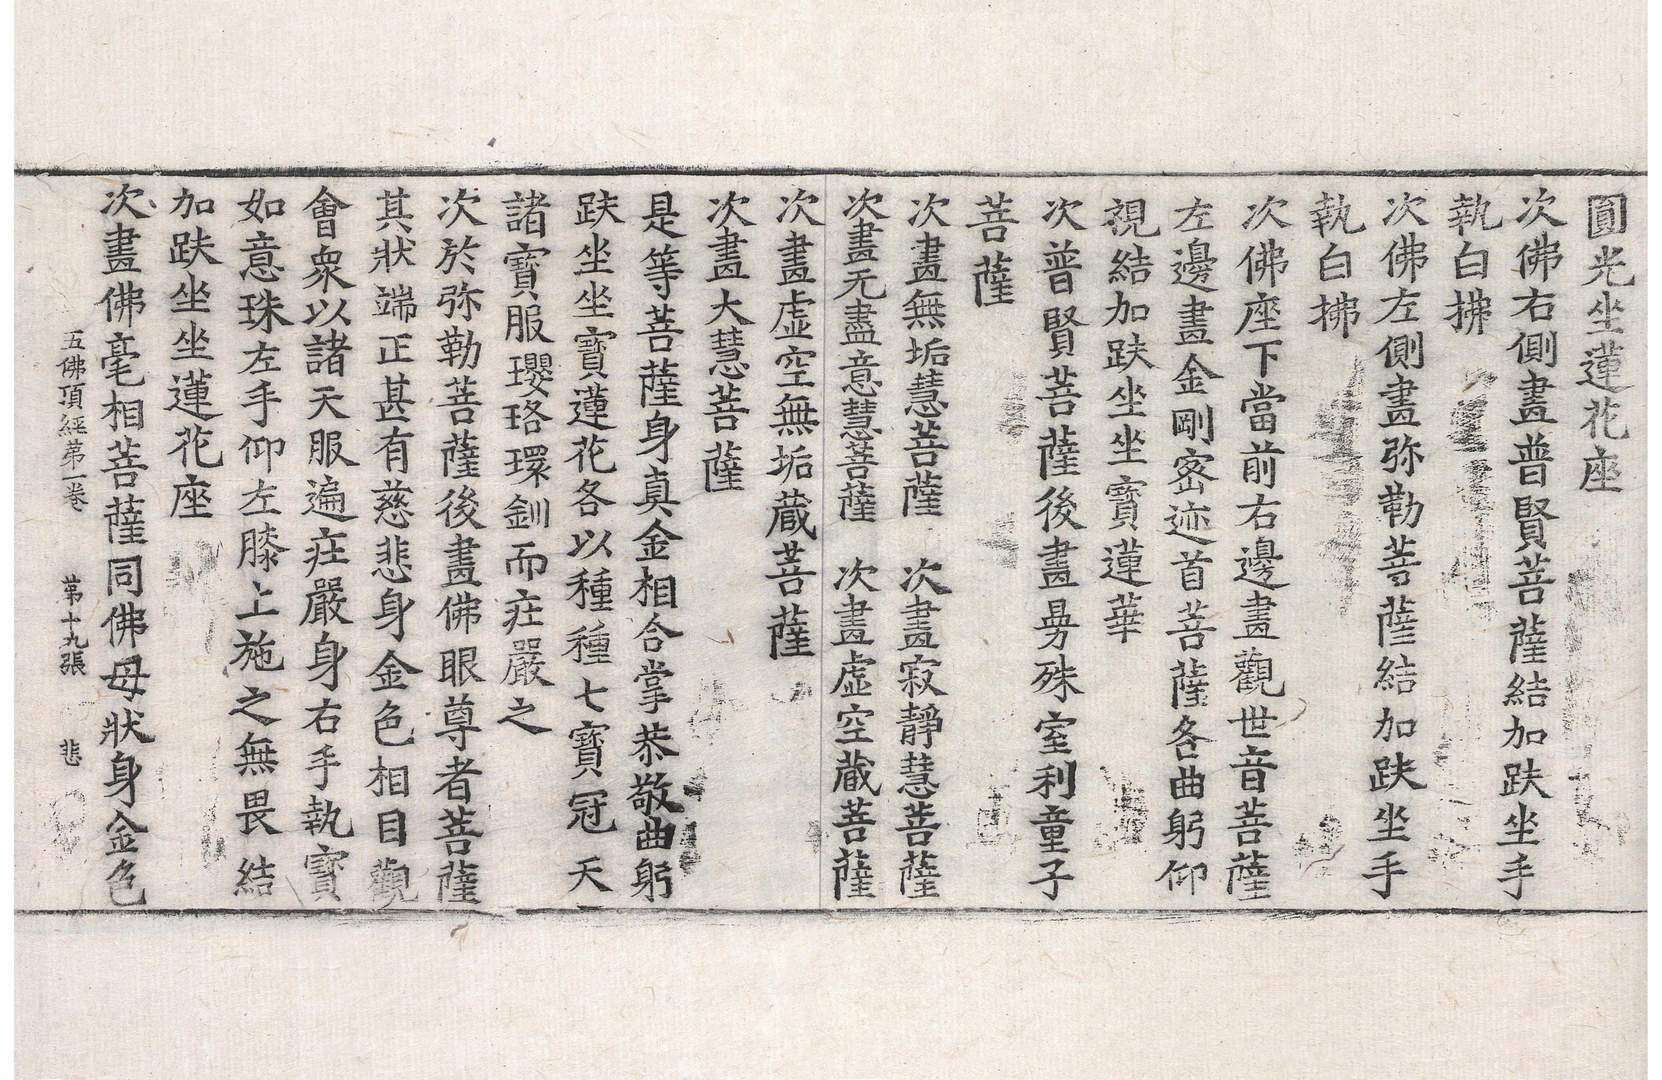 圓光坐蓮花座
次佛右側畫普賢菩薩結加趺坐手
執白拂
次佛左側畫弥勒菩薩結加趺坐手
執白拂
次佛座下當前右邊畫觀世音菩薩
左邊畫金剛密迹首菩薩各曲躬仰
視結加趺坐坐寶蓮華
次普賢菩薩後畫曼殊室利童子
菩薩
次畫無垢慧菩薩 次畫寂靜慧菩薩
次畫无盡意慧菩薩 次畫虛空藏菩薩
次畫虛空無垢藏菩薩
次畫大慧菩薩
是等菩薩身真金相合掌恭敬曲躬
趺坐坐寶蓮花各以種種七寶冠天
諸寶服瓔珞環釧而莊嚴之
次於弥勒菩薩後畫佛眼尊者菩薩
其狀端正甚有慈悲身金色相目觀
會衆以諸天服遍莊嚴身右手執寶
如意珠左手仰左膝上施之無畏結
加趺坐坐蓮花座
五佛頂經第一卷 第十九張 悲
次畫佛毫相菩薩同佛母狀身金色